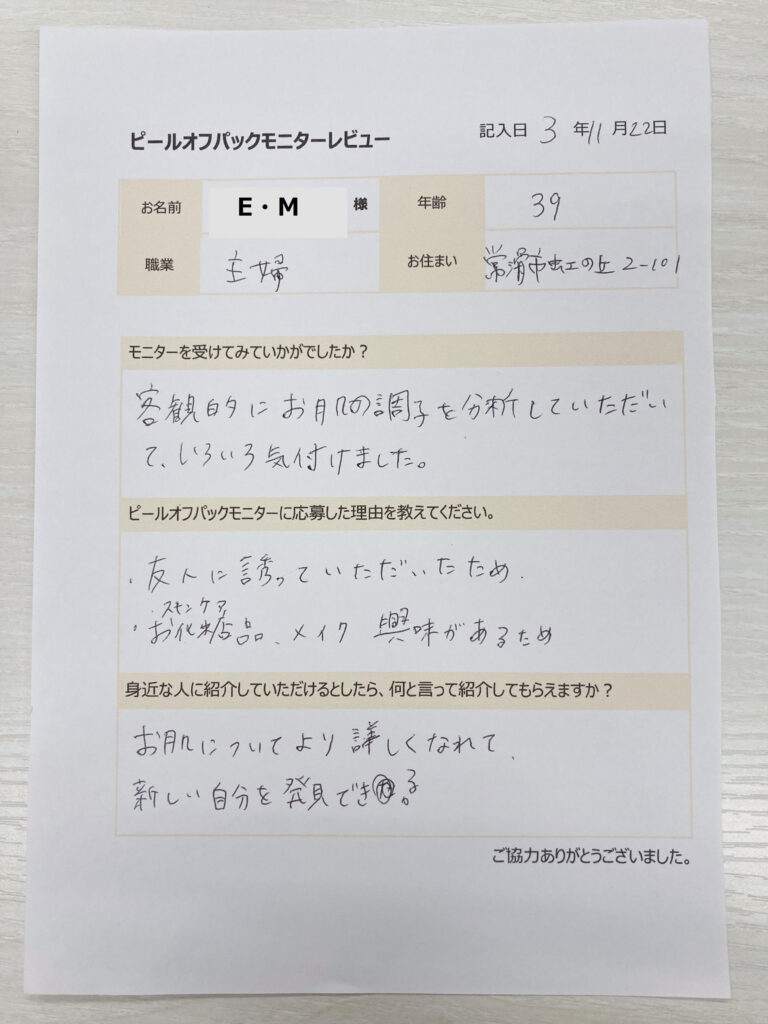 ピールオフパックモニターレビュー
記入日 3 年 11 月 22 日
お名前 E・M 様 年齢 39
職業 主婦 お住まい 常滑市虹の丘 2-101
モニターを受けてみていかがでしたか？
客観的にお肌の調子を分析していただい
て、いろいろ気付けました。
ピールオフパックモニターに応募した理由を教えてください。
・友人に誘っていただいたため.
・スキンケア
・お化粧品、メイク 興味があるため
身近な人に紹介していただけるとしたら、何と言って紹介してもらえますか？
お肌についてより詳しくなれて、
新しい自分を発見できる。
ご協力ありがとうございました。